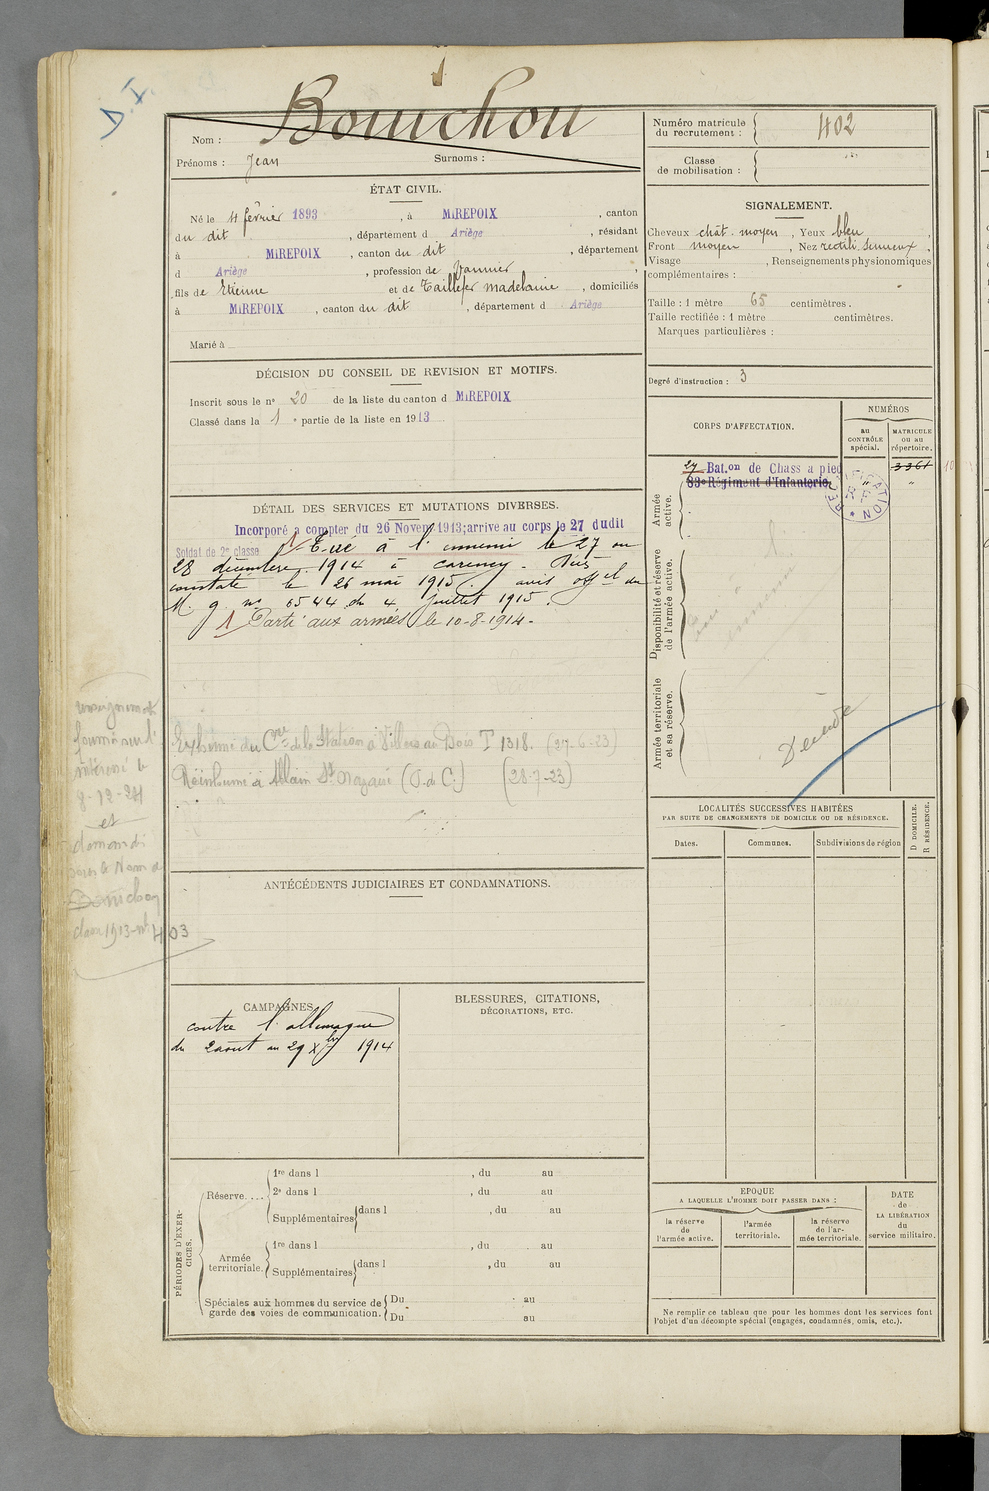 D.I.
Nom : Bouichou
Prénoms : Jean Surnoms :
Numéro matricule du recrutement : 402
Classe de mobilisation :
ÉTAT CIVIL.
Né le 4 février 1893, à MIREPOIX, canton
du dit, département d Ariège, résidant
à MIREPOIX, canton du dit, département
d Ariège, profession de Vannier,
fils de Etienne et de Taillefer Madelaine, domiciliés
à MIREPOIX, canton du dit, département d Ariège
Marié à
SIGNALEMENT.
Cheveux chât. moyen, Yeux bleu,
Front moyen, Nez rectili. sinueux,
Visage , Renseignements physionomiques
complémentaires :
Taille : 1 mètre 65 centimètres.
Taille rectifiée : 1 mètre centimètres.
Marques particulières :
Degré d'instruction : 3
DÉCISION DU CONSEIL DE REVISION ET MOTIFS.
Inscrit sous le n° 20 de la liste du canton d MIREPOIX
Classé dans la 1 e partie de la liste en 1913
CORPS D'AFFECTATION.
NUMÉROS
au CONTRÔLE spécial.
MATRICULE ou au répertoire.
27 Bat.on de Chass à pied " 3361
83e Régiment d'Infanterie. "
Armée active.
Disponibilité et réserve de l'armée active.
Tué à l'ennemi
Armée territoriale et sa réserve.
Décédé
DÉTAIL DES SERVICES ET MUTATIONS DIVERSES.
Incorporé à compter du 26 Novem 1913; arrivé au corps le 27 dudit
Soldat de 2e classe. Tué à l'ennemi le 27 ou
28 décembre 1914 à Carency. Décès
constaté le 26 mai 1915. avis off el du
M. g. n° 6544 du 4 juillet 1915.
1 Parti aux armées le 10-8-1914-
Exhumé du Cre de la Station à Villers au Bois T 1318. (27-6-23)
Réinhumé à Ablain St Nazaire (P. de C.) (28-7-23)
renseignement
fourni sur l'
intéressé le
8-12-24
et
demandé
sous le Nom de
Bouichou
classe 1913 - n° 403
ANTÉCÉDENTS JUDICIAIRES ET CONDAMNATIONS.
LOCALITÉS SUCCESSIVES HABITÉES
PAR SUITE DE CHANGEMENTS DE DOMICILE OU DE RÉSIDENCE.
Dates. Communes. Subdivisions de région
D DOMICILE.
R RÉSIDENCE.
CAMPAGNES
contre l'allemagne
du 2 aout au 29 Xbre 1914
BLESSURES, CITATIONS,
DÉCORATIONS, ETC.
PÉRIODES D'EXERCICES.
Réserve....
1re dans l , du au
2e dans l , du au
Supplémentaires dans l , du au
Armée territoriale.
1re dans l , du au
Supplémentaires dans l , du au
Spéciales aux hommes du service de garde des voies de communication.
Du au
Du au
EPOQUE
A LAQUELLE L'HOMME DOIT PASSER DANS :
la réserve de l'armée active.
l'armée territoriale.
la réserve de l'armée territoriale.
DATE
de
LA LIBÉRATION
du
service militaire.
Ne remplir ce tableau que pour les hommes dont les services font
l'objet d'un décompte spécial (engagés, condamnés, omis, etc.).